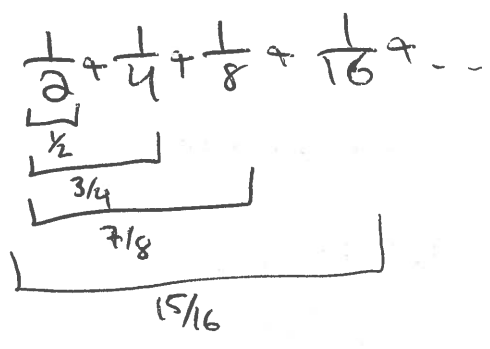 1/2 + 1/4 + 1/8 + 1/16 + ...
1/2
3/4
7/8
15/16